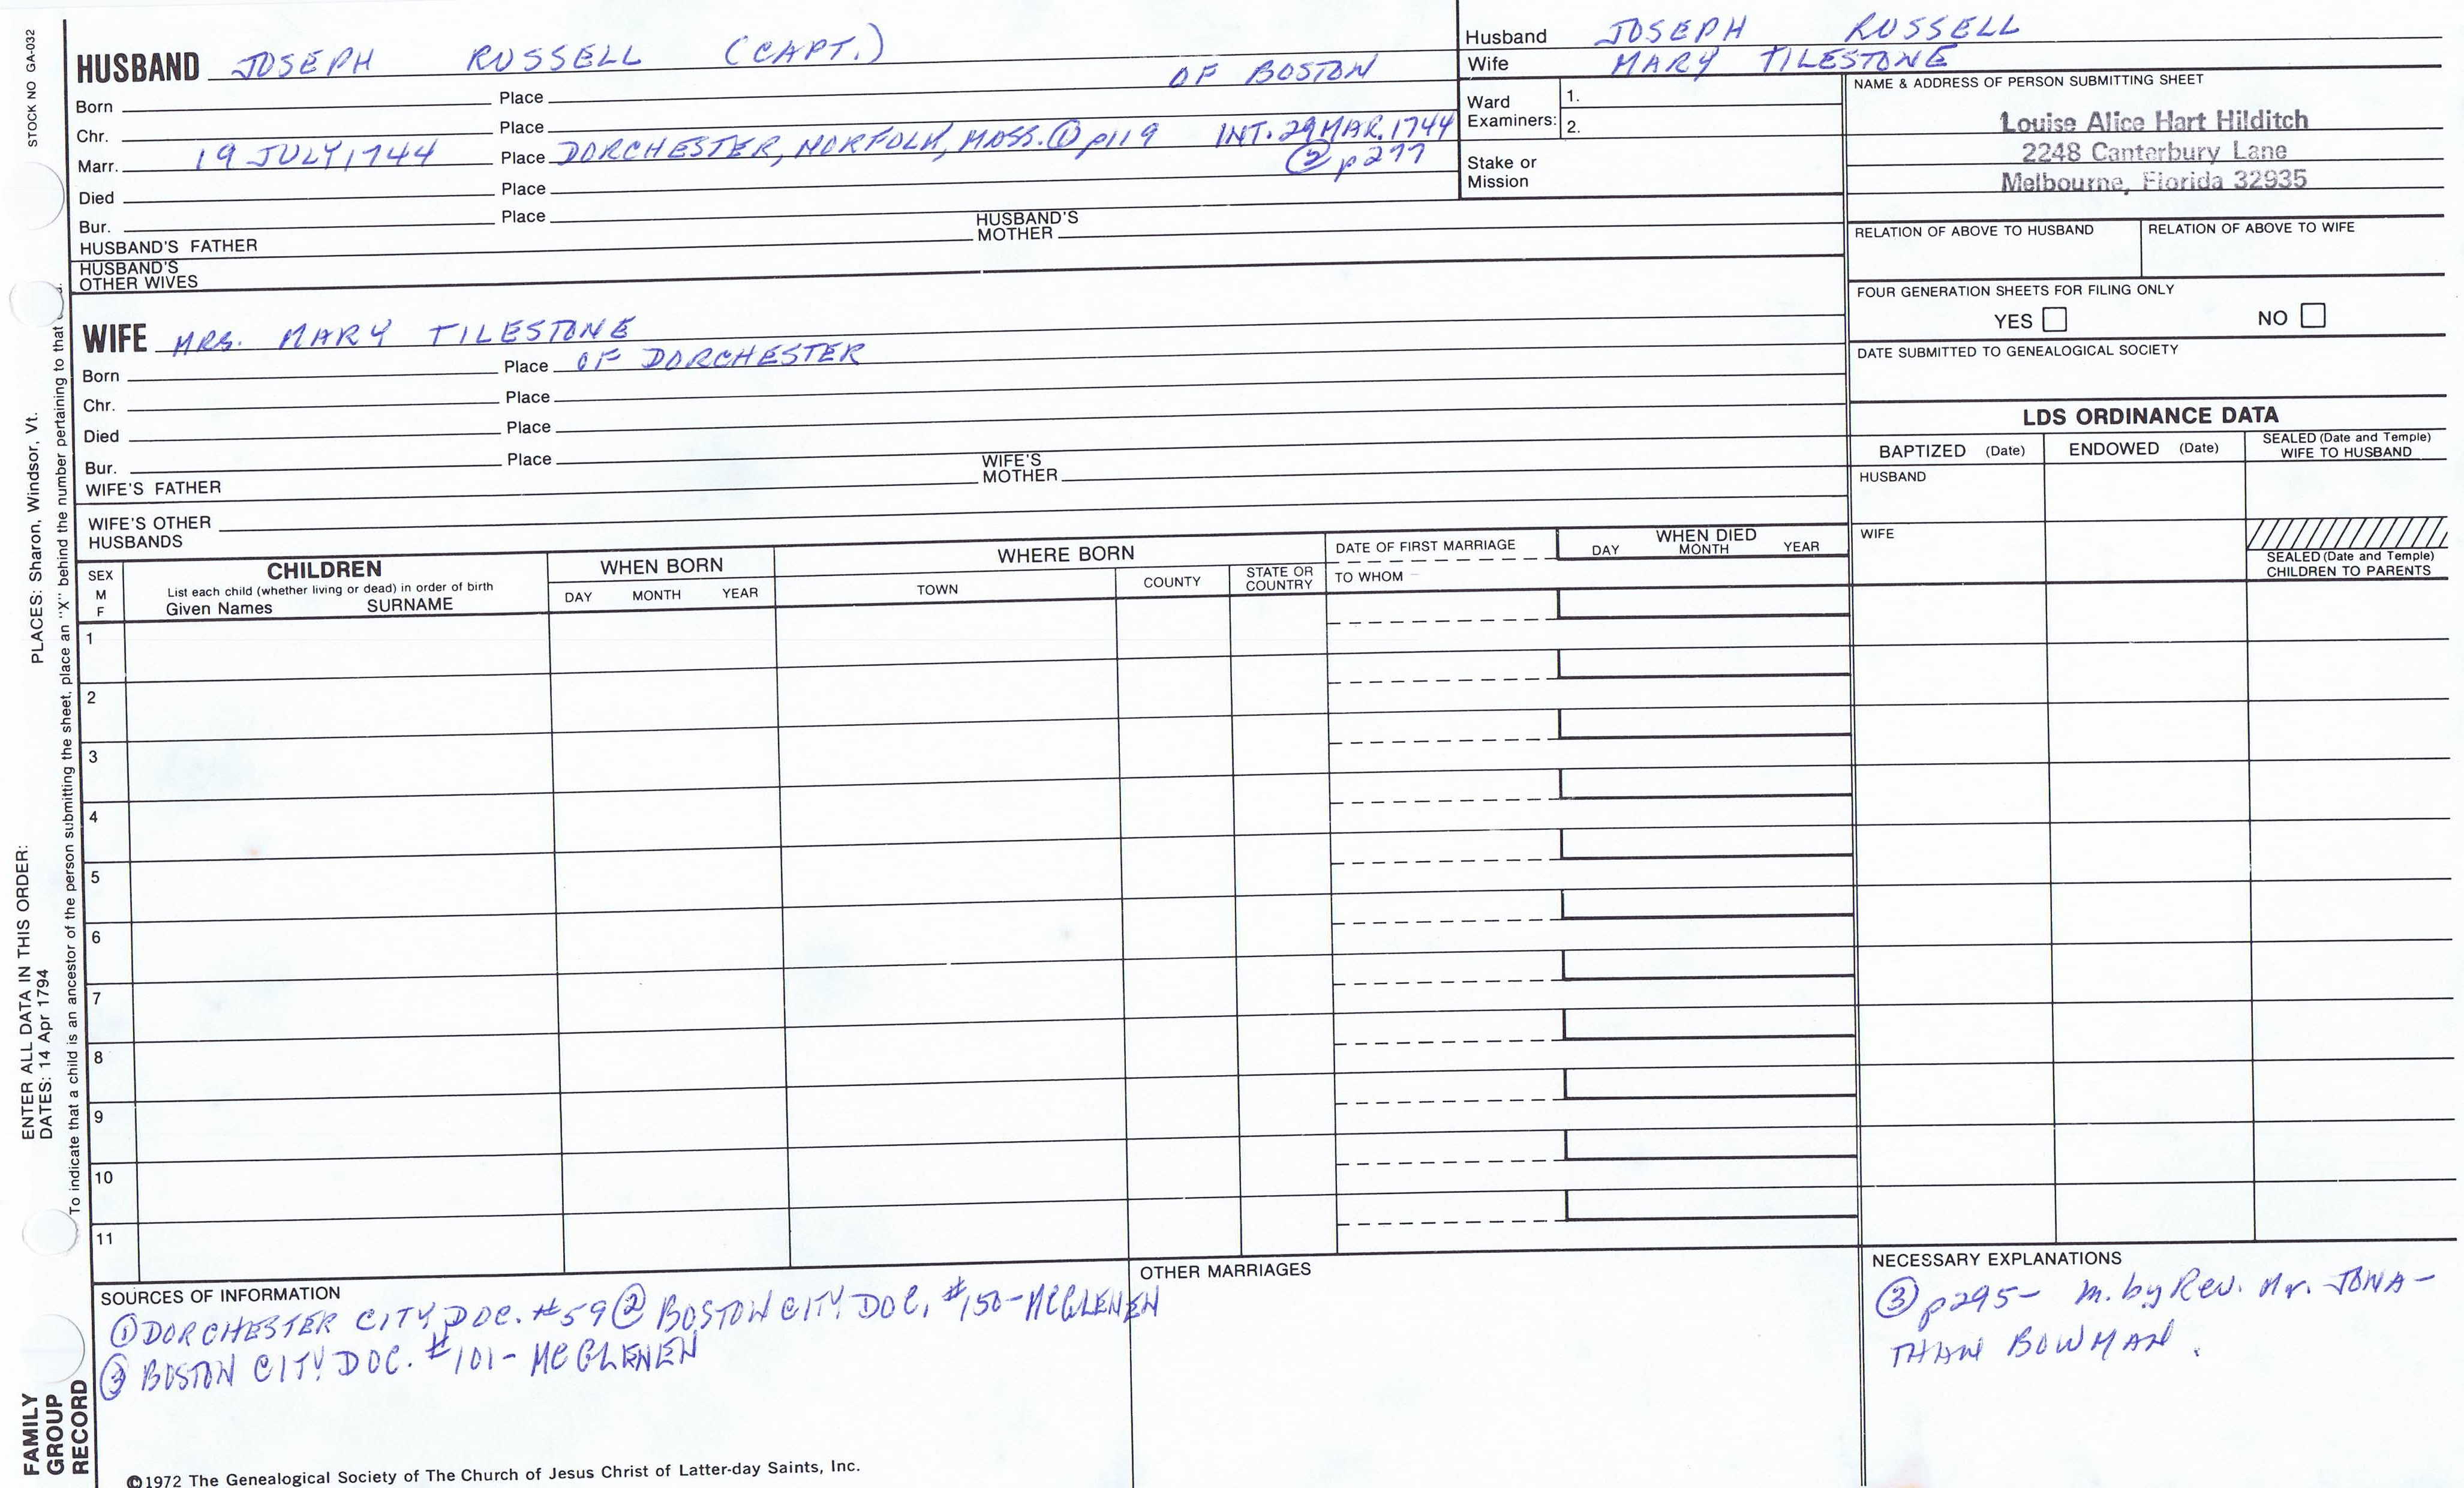 STOCK NO GA-032
HUSBAND JOSEPH RUSSELL (CAPT.)
Born Place OF BOSTON
Chr. Place
Marr. 19 JULY 1744 Place DORCHESTER, NORFOLK, MASS. ① p119 INT. 29 MAR. 1744
② p277
Died Place
Bur. Place
HUSBAND'S FATHER HUSBAND'S MOTHER
HUSBAND'S OTHER WIVES
Husband JOSEPH RUSSELL
Wife MARY TILESTONE
Ward Examiners: 1.
2.
Stake or Mission
NAME & ADDRESS OF PERSON SUBMITTING SHEET
Louise Alice Hart Hilditch
2248 Canterbury Lane
Melbourne, Florida 32935
RELATION OF ABOVE TO HUSBAND RELATION OF ABOVE TO WIFE
FOUR GENERATION SHEETS FOR FILING ONLY
YES NO
DATE SUBMITTED TO GENEALOGICAL SOCIETY
WIFE MRS. MARY TILESTONE
Born Place OF DORCHESTER
Chr. Place
Died Place
Bur. Place
WIFE'S FATHER WIFE'S MOTHER
WIFE'S OTHER HUSBANDS
LDS ORDINANCE DATA
BAPTIZED (Date) ENDOWED (Date) SEALED (Date and Temple) WIFE TO HUSBAND
HUSBAND
WIFE
SEALED (Date and Temple) CHILDREN TO PARENTS
SEX M F
CHILDREN
List each child (whether living or dead) in order of birth
Given Names SURNAME
WHEN BORN
DAY MONTH YEAR
WHERE BORN
TOWN COUNTY STATE OR COUNTRY
DATE OF FIRST MARRIAGE
TO WHOM
WHEN DIED
DAY MONTH YEAR
1
2
3
4
5
6
7
8
9
10
11
SOURCES OF INFORMATION
① DORCHESTER CITY DOC. #59 ② BOSTON CITY DOC. #150-MCGLENEN
③ BOSTON CITY DOC. #101- MCGLENEN
OTHER MARRIAGES
NECESSARY EXPLANATIONS
③ p295- m. by Rev. Mr. JONA-
THAN BOWMAN.
©1972 The Genealogical Society of The Church of Jesus Christ of Latter-day Saints, Inc.
FAMILY
GROUP
RECORD
ENTER ALL DATA IN THIS ORDER:
DATES: 14 Apr 1794
PLACES: Sharon, Windsor, Vt.
To indicate that a child is an ancestor of the person submitting the sheet, place an "X" behind the number pertaining to that